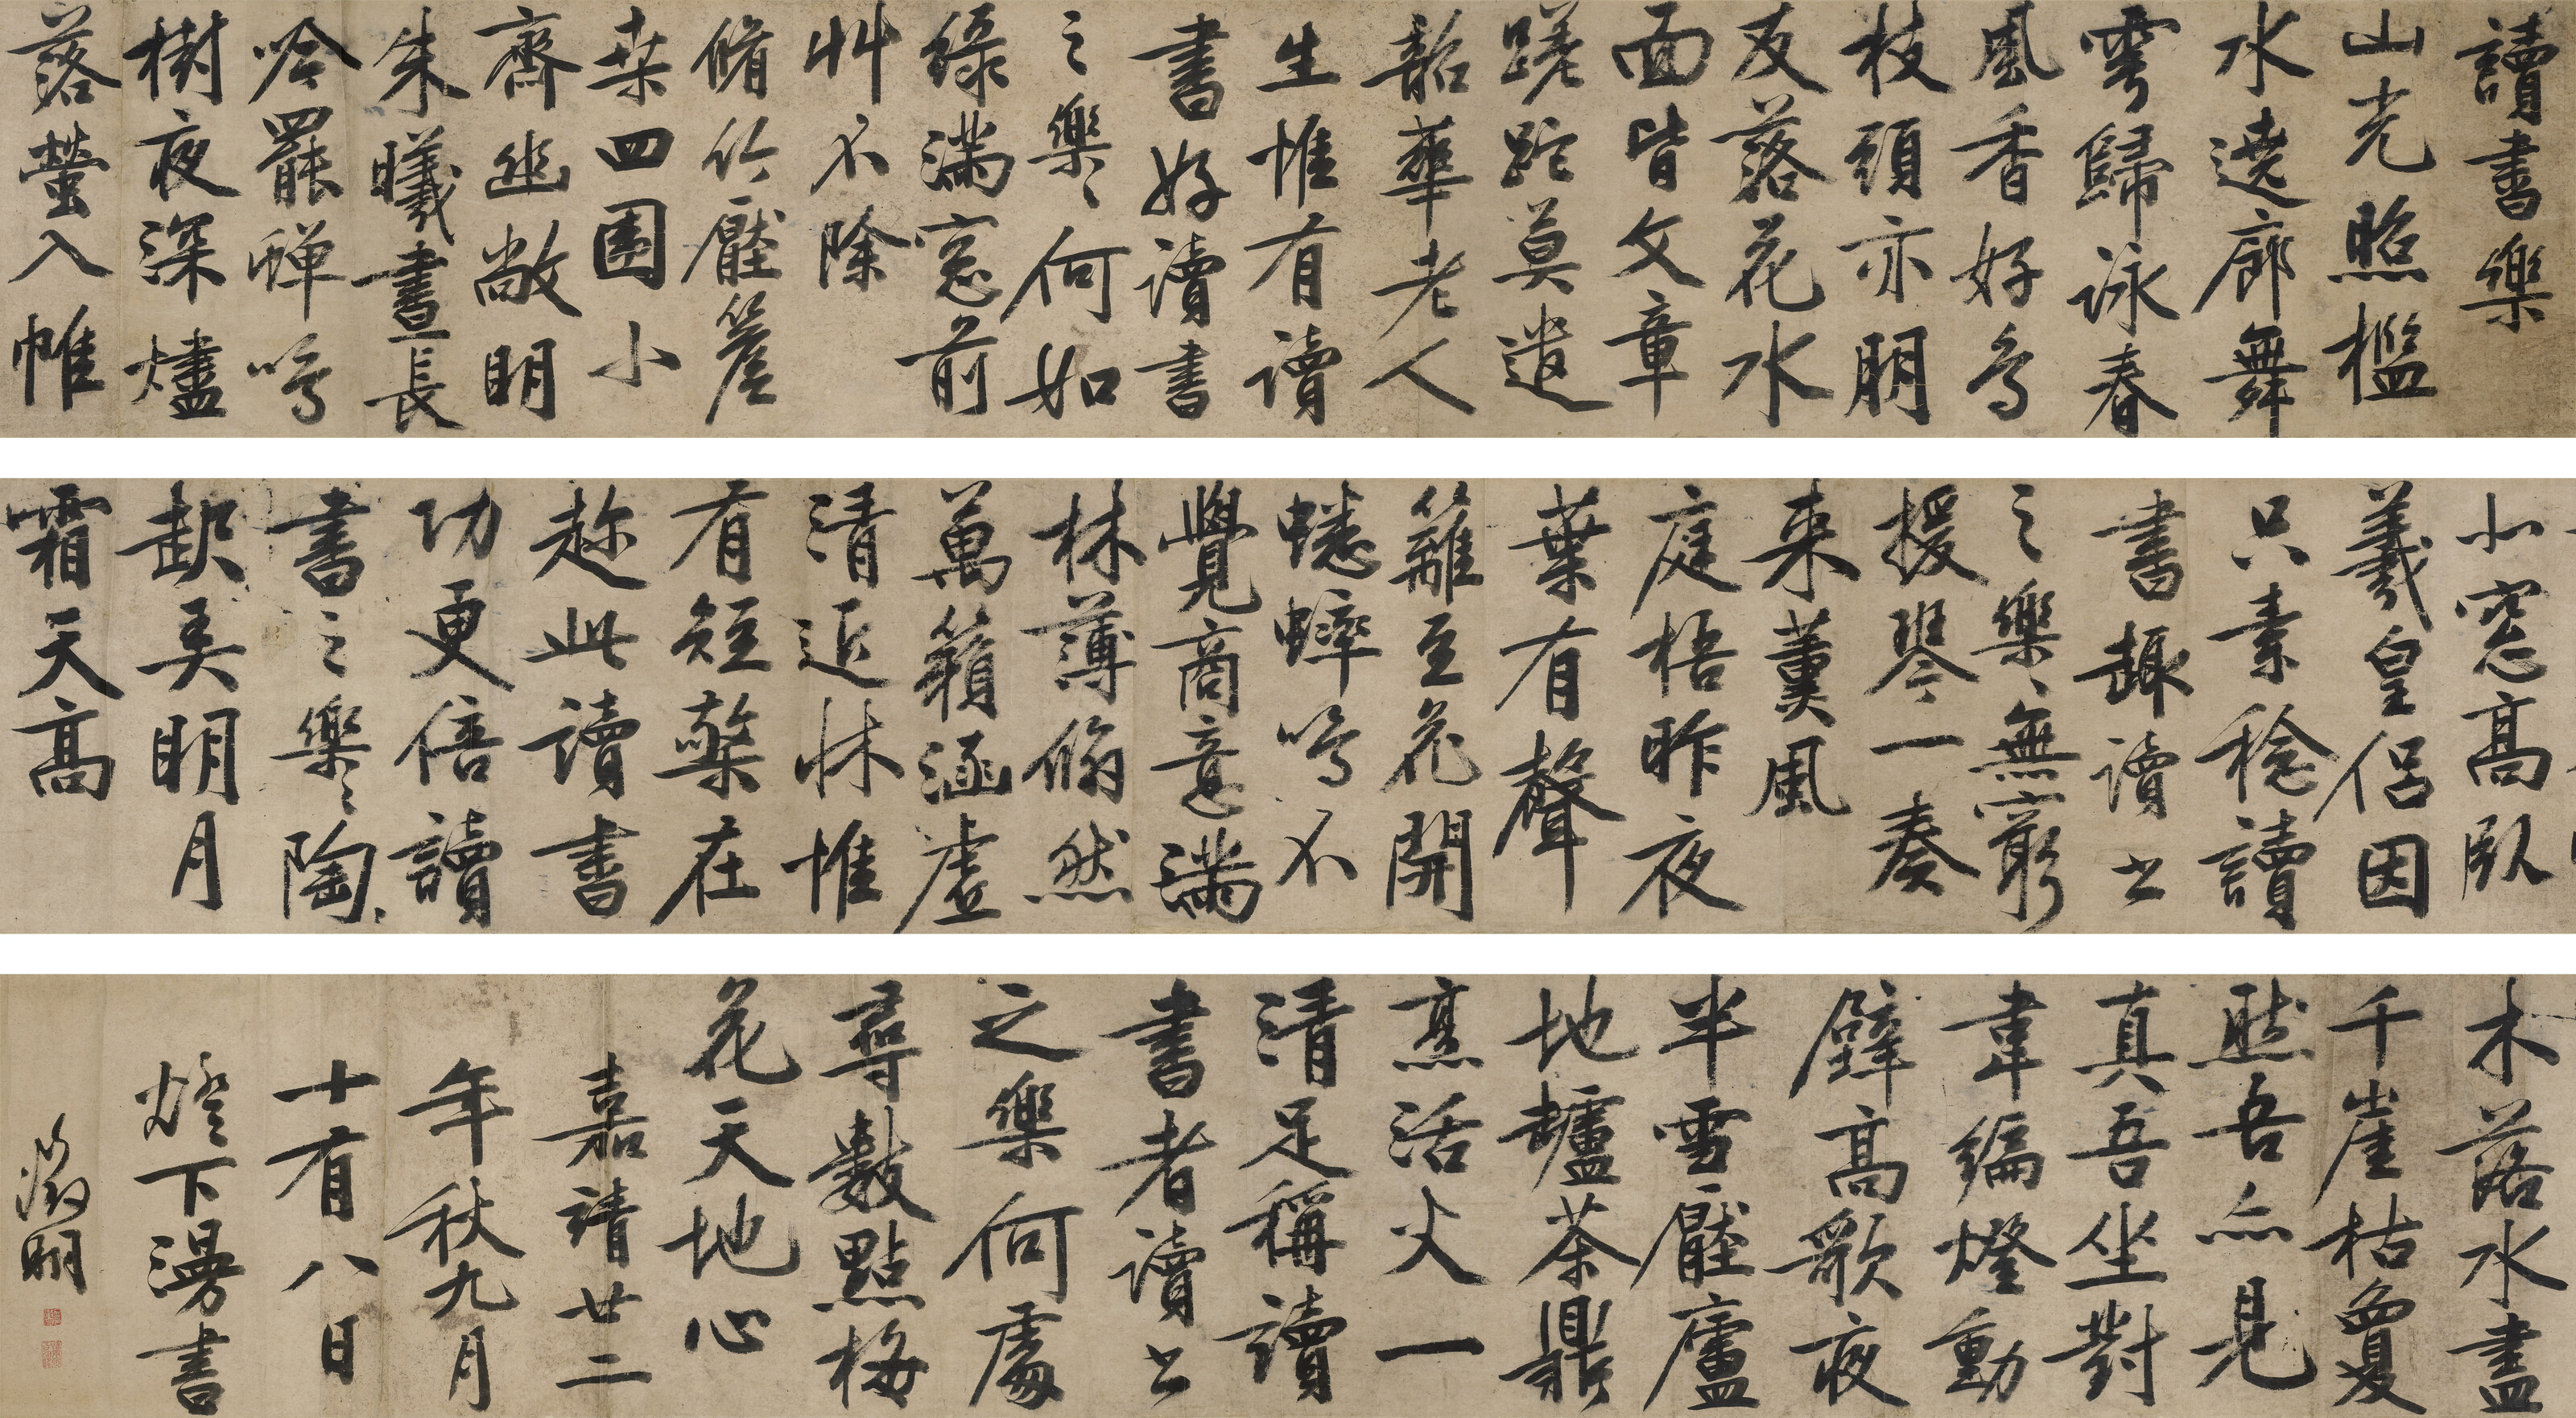 讀書樂
山光照檻
水遶廊舞
雩歸詠春
風香好鳥
枝頭亦朋
友落花水
面皆文章
蹉跎莫遣
韶華老人
生惟有讀
書好讀書
之樂〻何如
綠滿窓前
艸不除
脩竹壓簷
桒四圍小
齋幽敞明
朱曦晝長
吟罷蟬鳴
樹夜深燼
落螢入帷
北窓高臥
羲皇侶因
只素稔讀
書趣讀書
之樂〻無窮
援琴一奏
来薰風
庭梧昨夜
葉有聲
籬豆花開
蟋蟀鳴不
覺商意滿
林薄翛然
萬籟涵虛
清近牀惟
有短檠在
趂此讀書
功更倍讀
書之樂〻陶〻
起弄明月
霜天高
木落水盡
千崖枯敻
然吾亦見
真吾坐對
韋編燈動
壁高歌夜
半雪壓廬
地爐茶鼎
烹活火一
清足稱讀
書者讀書
之樂何處
尋數點梅
花天地心
嘉靖廿二
年秋九月
十有八日
燈下漫書
徵明